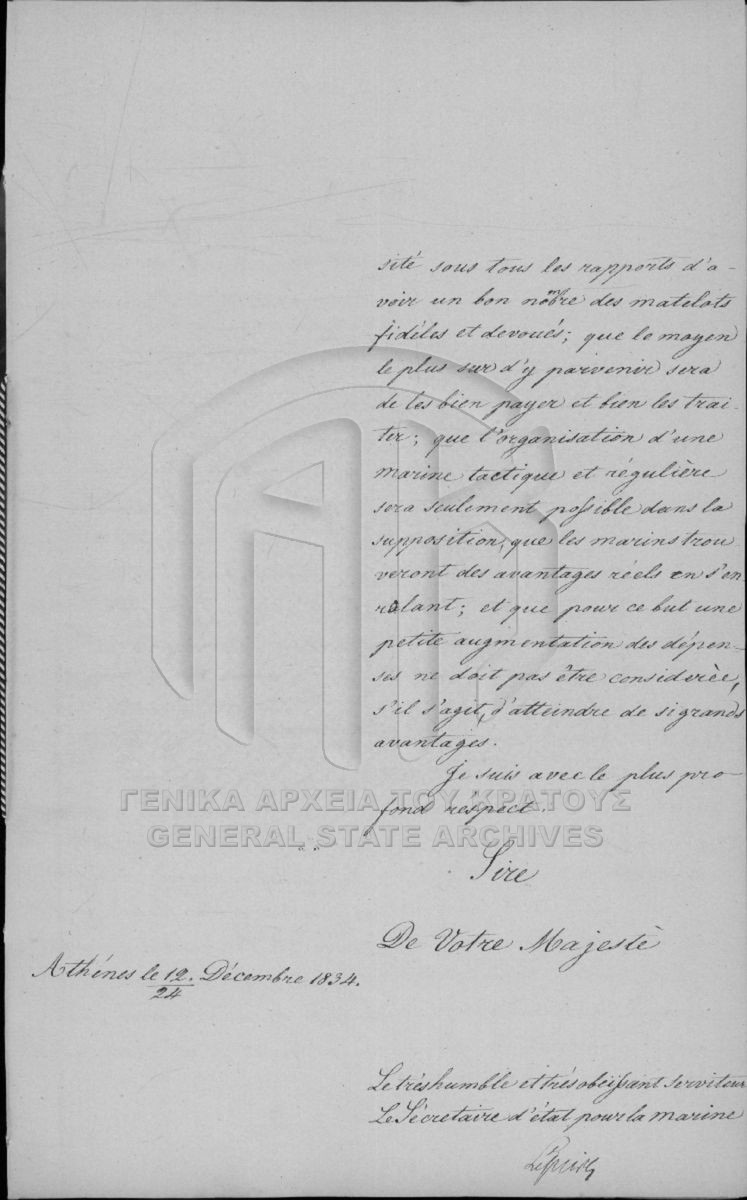 sité sous tous les rapports d'a-
voir un bon nombre des matelots
fidéles et devoués; que le moyen
le plus sur d'y parvenir sera
de les bien payer et bien les trai-
ter; que l'organisation d'une
marine tactique et régulière
sera seulement possible dans la
supposition, que les marins trou
veront des avantages réels en s'en
rolant; et que pour ce but une
petite augmentation des dépen-
ses ne doit pas être considerèe,
s'il s'agit, d'atteindre de si grands
avantages.
Je suis avec le plus pro-
fond respect.
ΓΕΝΙΚΑ ΑΡΧΕΙΑ ΤΟΥ ΚΡΑΤΟΥΣ
GENERAL STATE ARCHIVES
Sire
De Votre Majestè
Athénes le 12./24 Décembre 1834.
Le trés humble et trés obéissant serviteur
Le Sécretaire d'état pour la marine